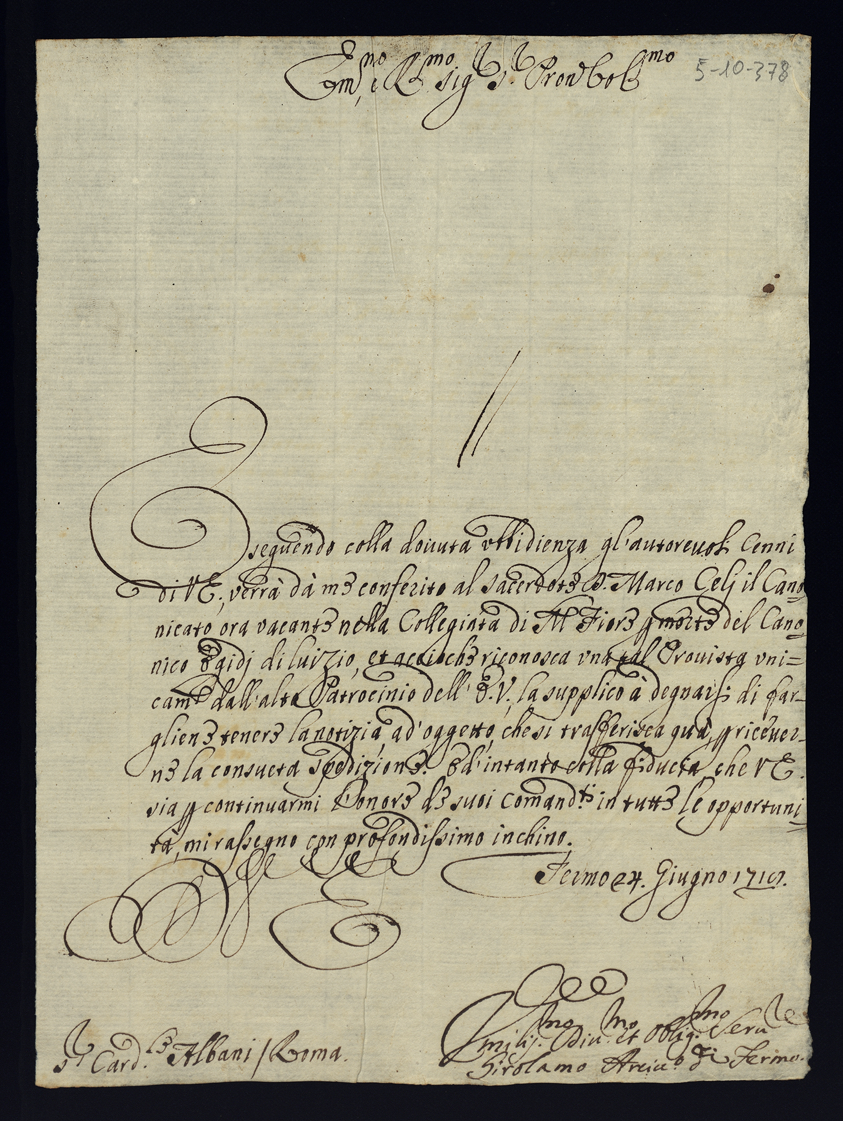 Em.mo e R.mo Sig.r S.r Pron Col.mo
5-10-378
Eseguendo colla douuta vbbidienza gl'autoreuoli Cenni
di V.E., verrà dà me conferito al Sacerdote D. Marco Celij il Cano=
nicato ora vacante nella Collegiata di M. Fiore p morte del Cano=
nico Egidj di luizio, et accioche riconosca vna tal Prouista vni=
cam.te dall'alto Patrocinio dell'E.V., la supplico à degnarsi di far=
gliene tenere la notizia, ad'oggetto, che si trasferisca quà, p riceuer=
ne la consueta spedizione. Ed'intanto colla fiducia, che V.E.
sia p continuarmi l'onore de suoi Comand.ti in tutte le opportuni=
tà, mi rassegno con profondissimo inchino.
Fermo 24. Giugno
V E
S.r Card.le Albani / Roma.
Vmiliss.mo Diu.mo et Oblig.mo Seru.re
Girolamo Arciu.o di Fermo.